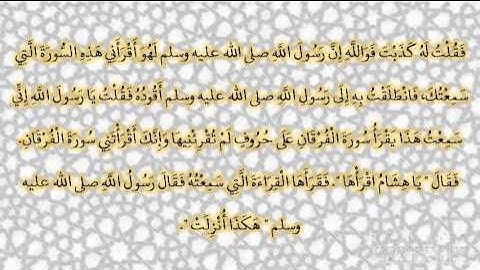 فَقُلْتُ لَهُ كَذَبْتَ فَوَاللَّهِ إِنَّ رَسُولَ اللَّهِ صلى الله عليه وسلم لَهُوَ أَقْرَأَنِي هَذِهِ السُّورَةَ الَّتِي
سَمِعْتُكَ، فَانْطَلَقْتُ بِهِ إِلَى رَسُولِ اللَّهِ صلى الله عليه وسلم أَقُودُهُ فَقُلْتُ يَا رَسُولَ اللَّهِ إِنِّي
سَمِعْتُ هَذَا يَقْرَأُ سُورَةَ الْفُرْقَانِ عَلَى حُرُوفٍ لَمْ تُقْرِئْنِيهَا وَإِنَّكَ أَقْرَأْتَنِي سُورَةَ الْفُرْقَانِ.
فَقَالَ " يَا هِشَامُ اقْرَأْهَا ". فَقَرَأَهَا الْقِرَاءَةَ الَّتِي سَمِعْتُهُ فَقَالَ رَسُولُ اللَّهِ صلى الله عليه
وسلم " هَكَذَا أُنْزِلَتْ ".